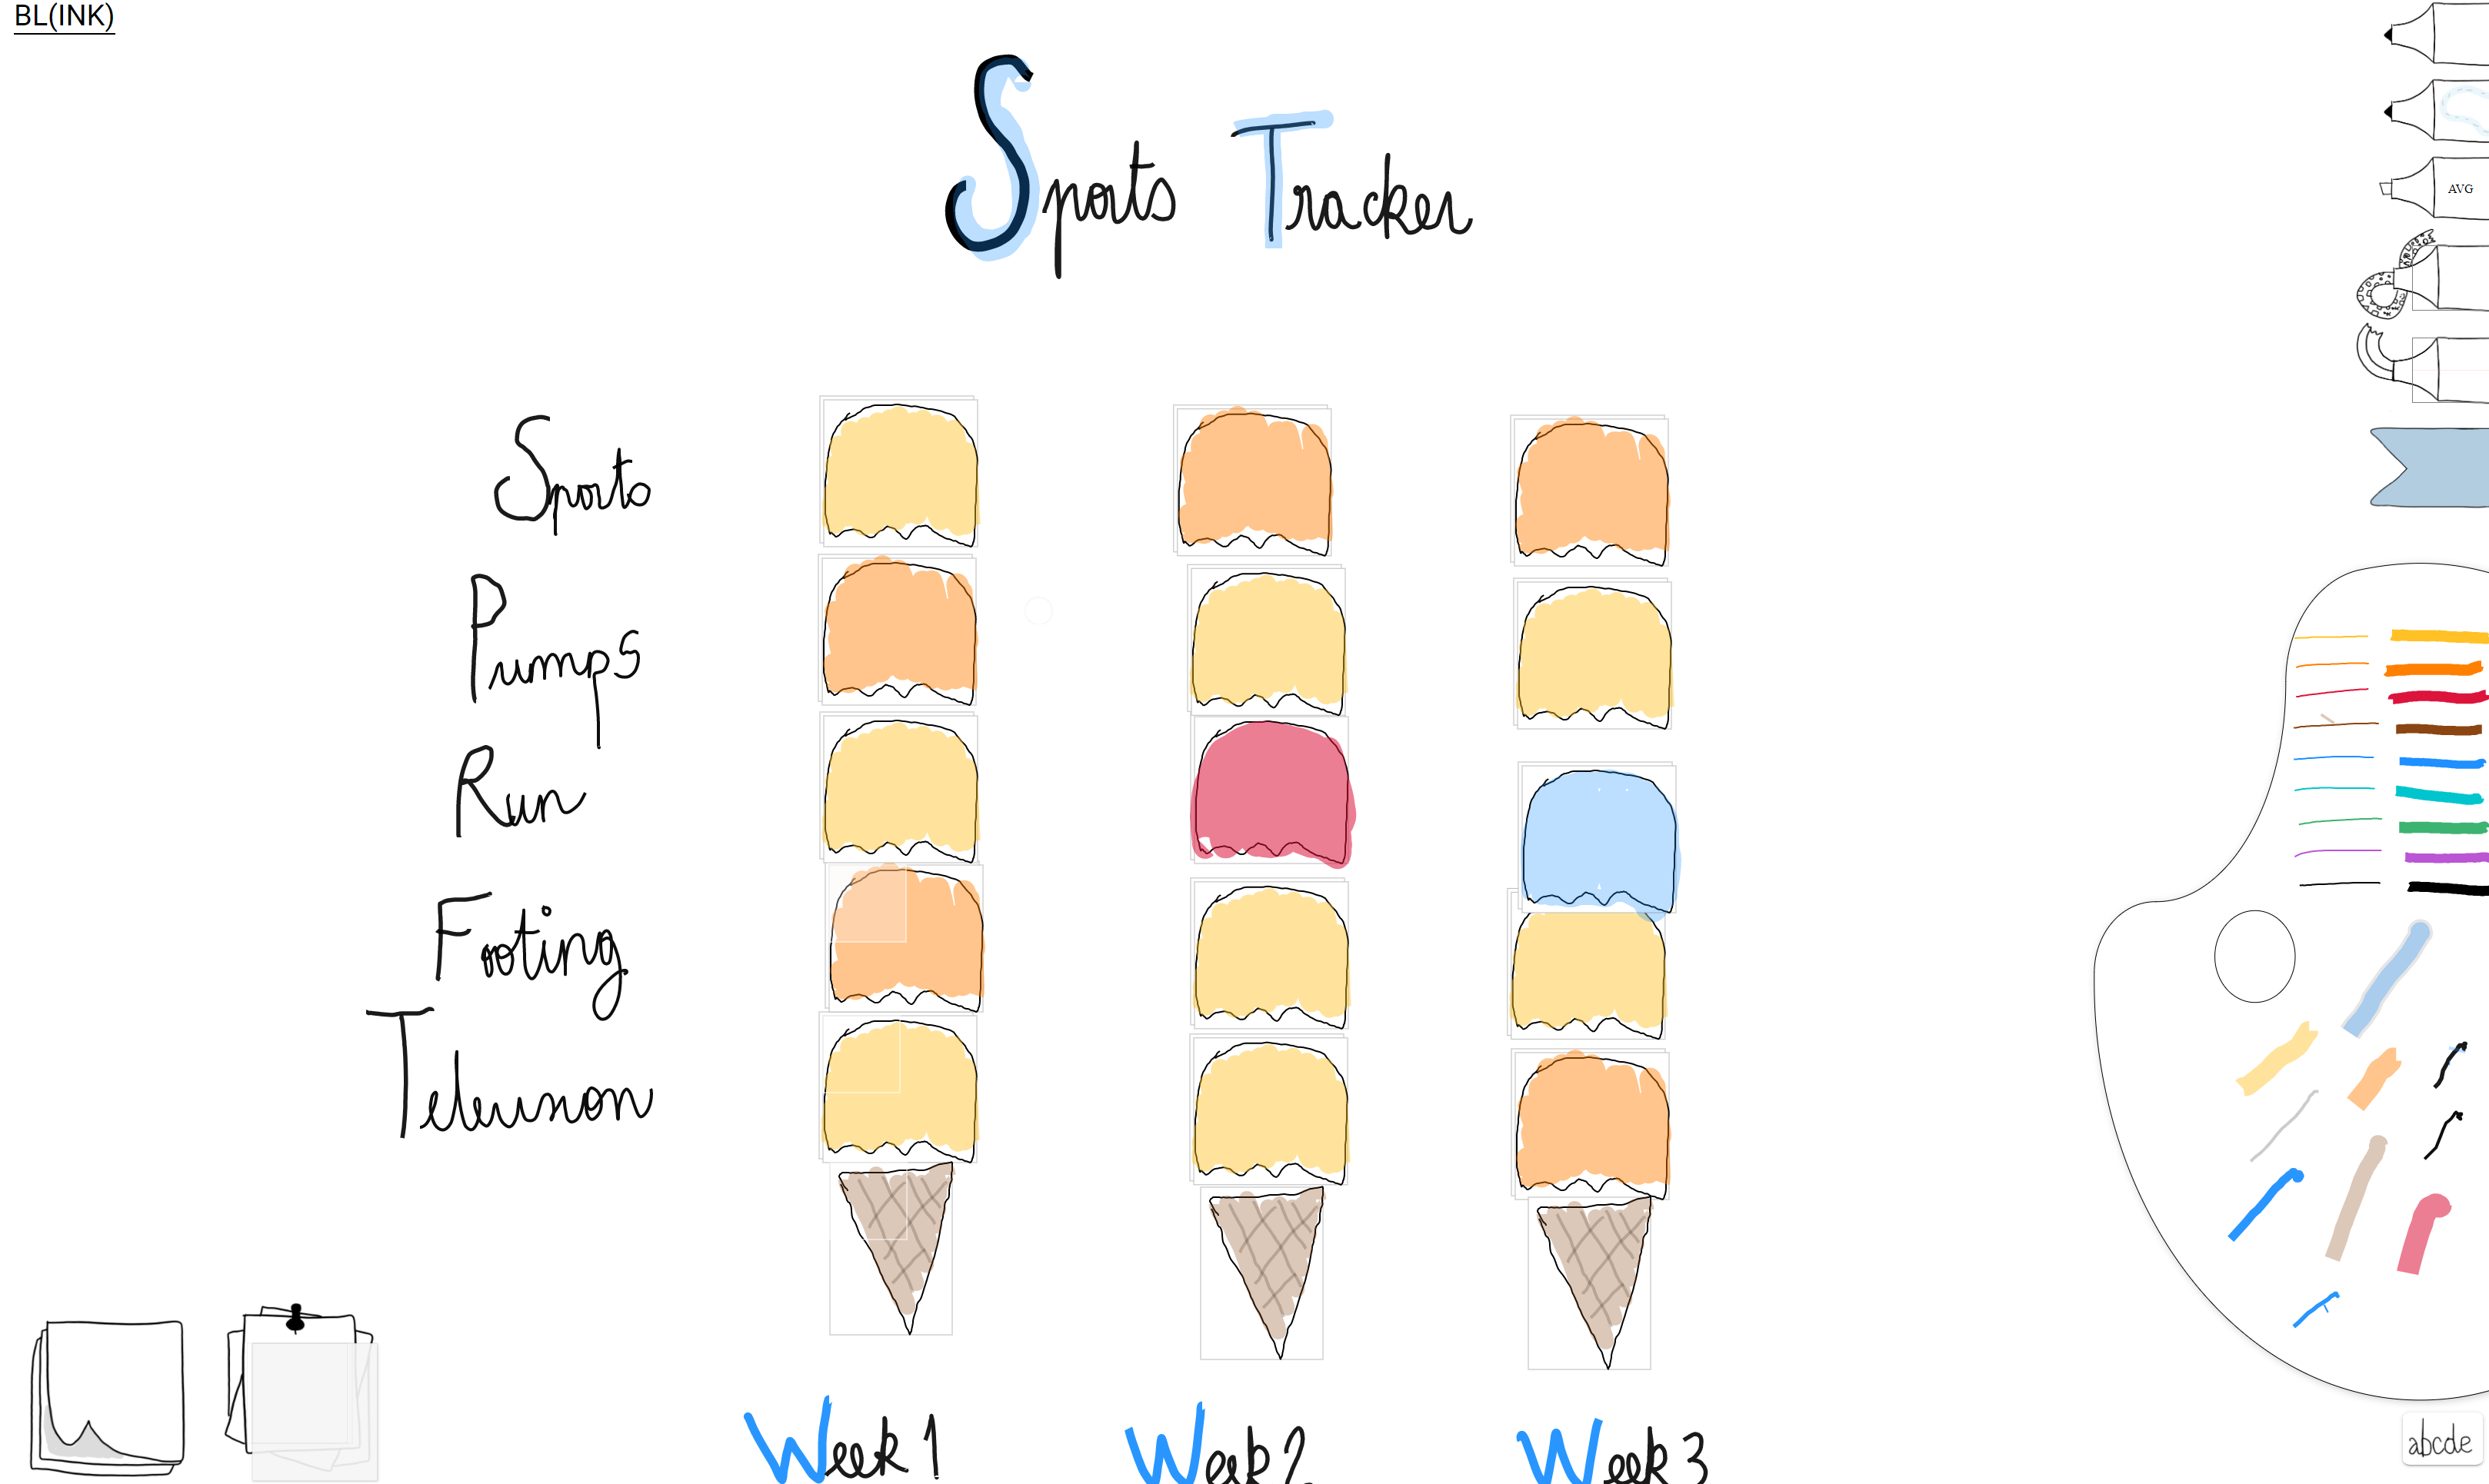 BL(INK)
Sports Tracker
AVG
Sports
Pumps
Run
Footing
Television
Week 1
Week 2
Week 3
abcde